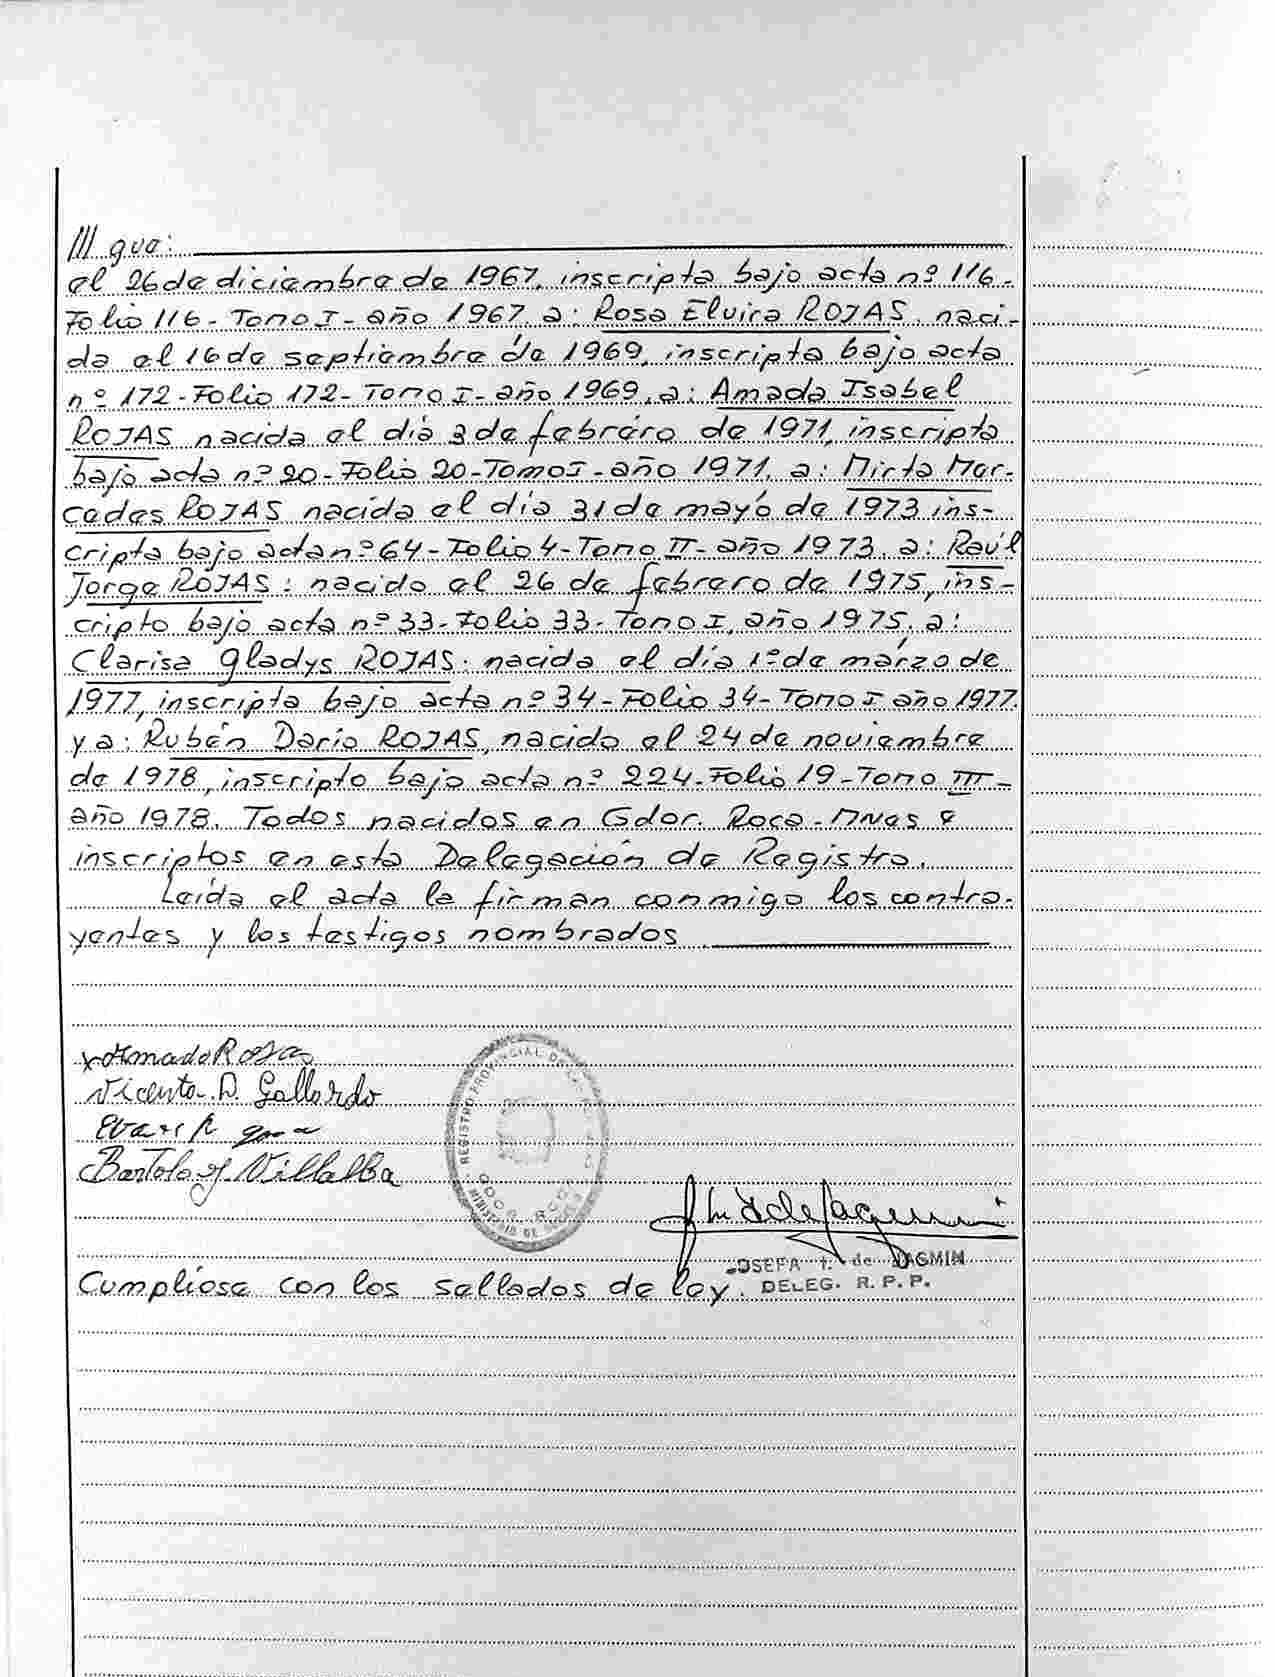 ///gue:
el 26 de diciembre de 1967, inscripta bajo acta nº 116-
Folio 116- Tomo I- año 1967 a: Rosa Elvira ROJAS, naci-
da el 16 de septiembre de 1969, inscripta bajo acta
nº 172-Folio 172-Tomo I- año 1969, a: Amada Isabel
ROJAS nacida el día 3 de febrero de 1971, inscripta
bajo acta nº 20-Folio 20-Tomo I-año 1971, a: Mirta Mer-
cedes ROJAS nacida el día 31 de mayo de 1973 ins-
cripta bajo acta nº 64-Folio 4-Tomo II- año 1973, a: Raúl
Jorge ROJAS: nacido el 26 de febrero de 1975, ins-
cripto bajo acta nº 33-Folio 33-Tomo I, año 1975, a:
Clarisa Gladys ROJAS: nacida el día 1º de marzo de
1977, inscripta bajo acta nº 34-Folio 34-Tomo I año 1977.
y a: Rubén Darío ROJAS, nacido el 24 de noviembre
de 1978, inscripto bajo acta nº 224-Folio 19-Tomo III-
año 1978. Todos nacidos en Gdor. Roca-Mnes e
inscriptos en esta Delegación de Registro.
Leída el acta la firman conmigo los contra-
yentes y los testigos nombrados
Amado Rojas
Vicenta D. Gallardo
Bartolo Villalba
REGISTRO PROVINCIAL DE LAS PERSONAS
GDOR. ROCA
MINISTERIO DE
JOSEFA de JAGMIN
DELEG. R. P. P.
Cumpliose con los sellados de ley.